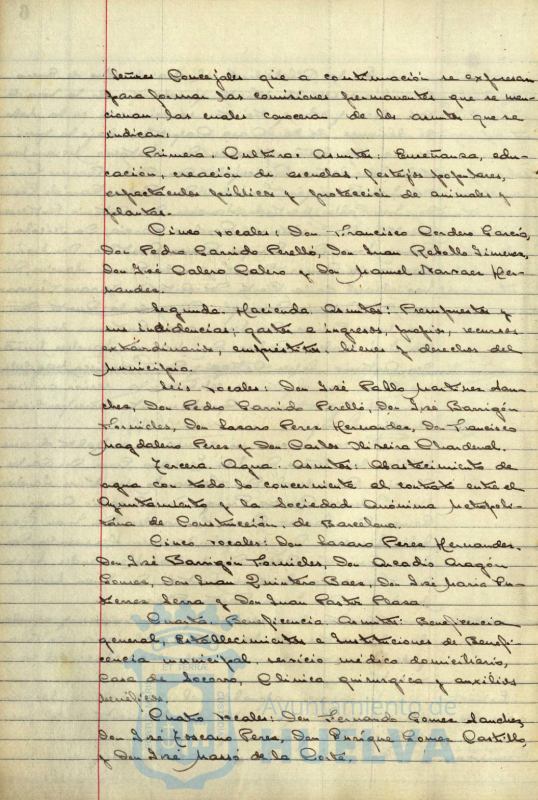 señores Concejales que a continuación se expresan
para formar las comisiones permanentes que se men-
cionan, las cuales conoceran de los asuntos que se
indican:
Primera. Cultura: Asuntos: Enseñanza, edu-
cación, creación de escuelas, festejos populares,
espectaculos públicos y protección de animales y
plantas.
Cinco vocales: Don Francisco Cordero García,
Don Pedro Garrido Perelló, Don Juan Rebollo Jimenez,
Don José Calero Calero y Don Manuel Narvaez Her-
nandez.
Segunda. Hacienda. Asuntos: Presupuestos y
sus indidencias; gastos e ingresos, propios, recursos
extraordinarios, empréstitos, bienes y derechos del
Municipio.
Seis vocales: Don José Pablo Martinez San-
chez, Don Pedro Garrido Perelló, Don José Barrigón
Fornieles, Don Lazaro Perez Hernandez, Don Francisco
Magdaleno Perez y Don Carlos Oliveira Chardenal.
Tercera. Agua. Asuntos: Abastecimiento de
agua con todo lo concerniente al contrato entre el
Ayuntamiento y la Sociedad Anónima Metropoli-
tana de Construcción, de Barcelona.
Cinco vocales: Don Lazaro Perez Hernandez.
Don José Barrigón Fornieles, Don Arcadio Aragón
Gomez, Don Juan Quintero Baez, Don José Maria Gu-
tierrez Serra y Don Juan Pastor Plaza
Cuarta. Beneficencia. Asuntos: Beneficencia
general, Establecimientos e Instituciones de Benefi-
cencia municipal, servicio médico domiciliario,
Casa de Socorro, Clinica quirurgica y auxilios
benéficos.
Cuatro vocales: Don Fernando Gomez Sanchez,
Don José Toscano Perez, Don Enrique Gomez Castillo,
y Don José Masso de la Corte.
Ayuntamiento de
HUELVA